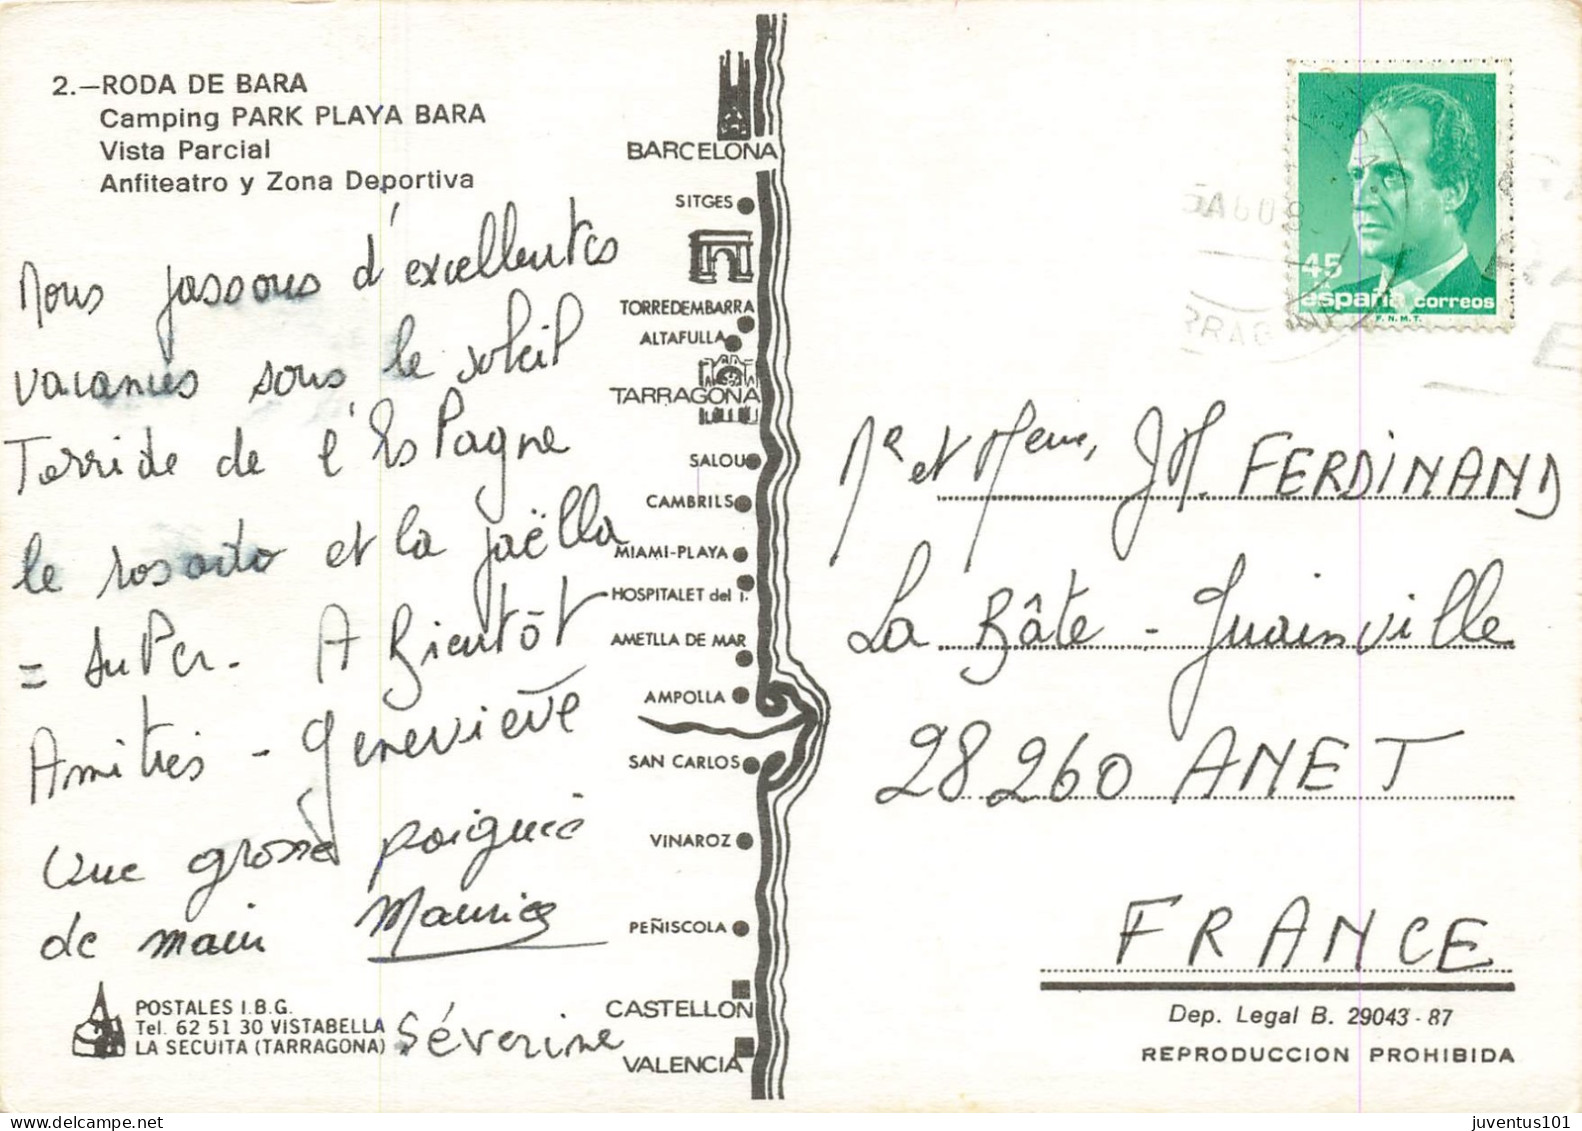 2.—RODA DE BARA
Camping PARK PLAYA BARA
Vista Parcial
Anfiteatro y Zona Deportiva
Nous passons d'excellentes
vacances sous le soleil
Torride de l'EsPagne
le rosado et la paëlla
= suPer. A Bientôt
Amitiés - Geneviève
une grosse poignée
de main Maurice
Séverine
POSTALES I.B.G.
Tel. 62 51 30 VISTABELLA
LA SECUITA (TARRAGONA)
BARCELONA
SITGES
TORREDEMBARRA
ALTAFULLA
TARRAGONA
SALOU
CAMBRILS
MIAMI-PLAYA
HOSPITALET del I.
AMETLLA DE MAR
AMPOLLA
SAN CARLOS
VINAROZ
PEÑISCOLA
CASTELLON
VALENCIA
45
españa correos
F.N.M.T.
Mr et Meme, JM. FERDINAND
La Bâte - Guainville
28260 ANET
FRANCE
Dep. Legal B. 29043-87
REPRODUCCION PROHIBIDA
juventus101